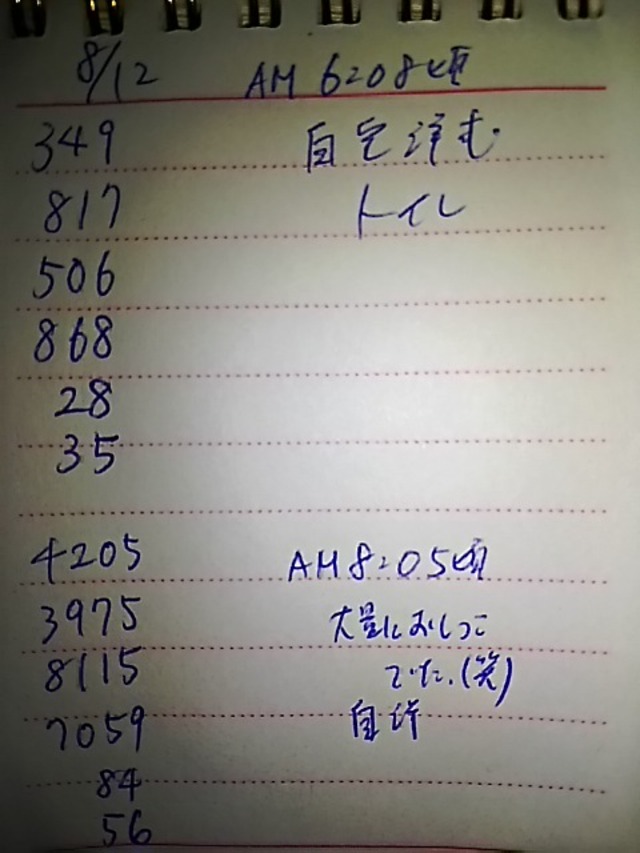 8/12 AM 6:08頃
349 自宅洋式
817 トイレ
506
868
28
35
4205 AM 8:05頃
3975 大量におしっこ
8115 でた.(笑)
7059 自
84
56